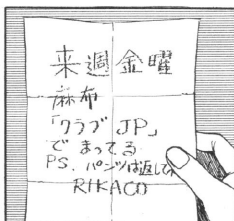 来週金曜
麻布
「クラブ JP」
でまってる
PS. パンツは返して
RIKACO